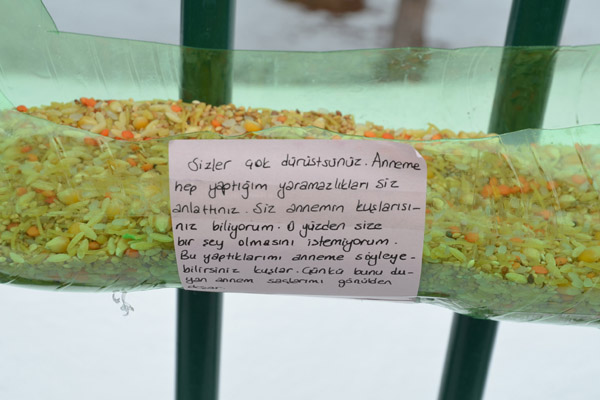 Sizler çok dürüstsünüz. Anneme
hep yaptığım yaramazlıkları siz
anlattınız. Siz annemin kuşlarısı-
nız biliyorum. O yüzden size
bir şey olmasını istemiyorum.
Bu yaptıklarımı anneme söyleye-
bilirsiniz kuşlar. Çünkü bunu du-
yan annem saçlarımı gönülden